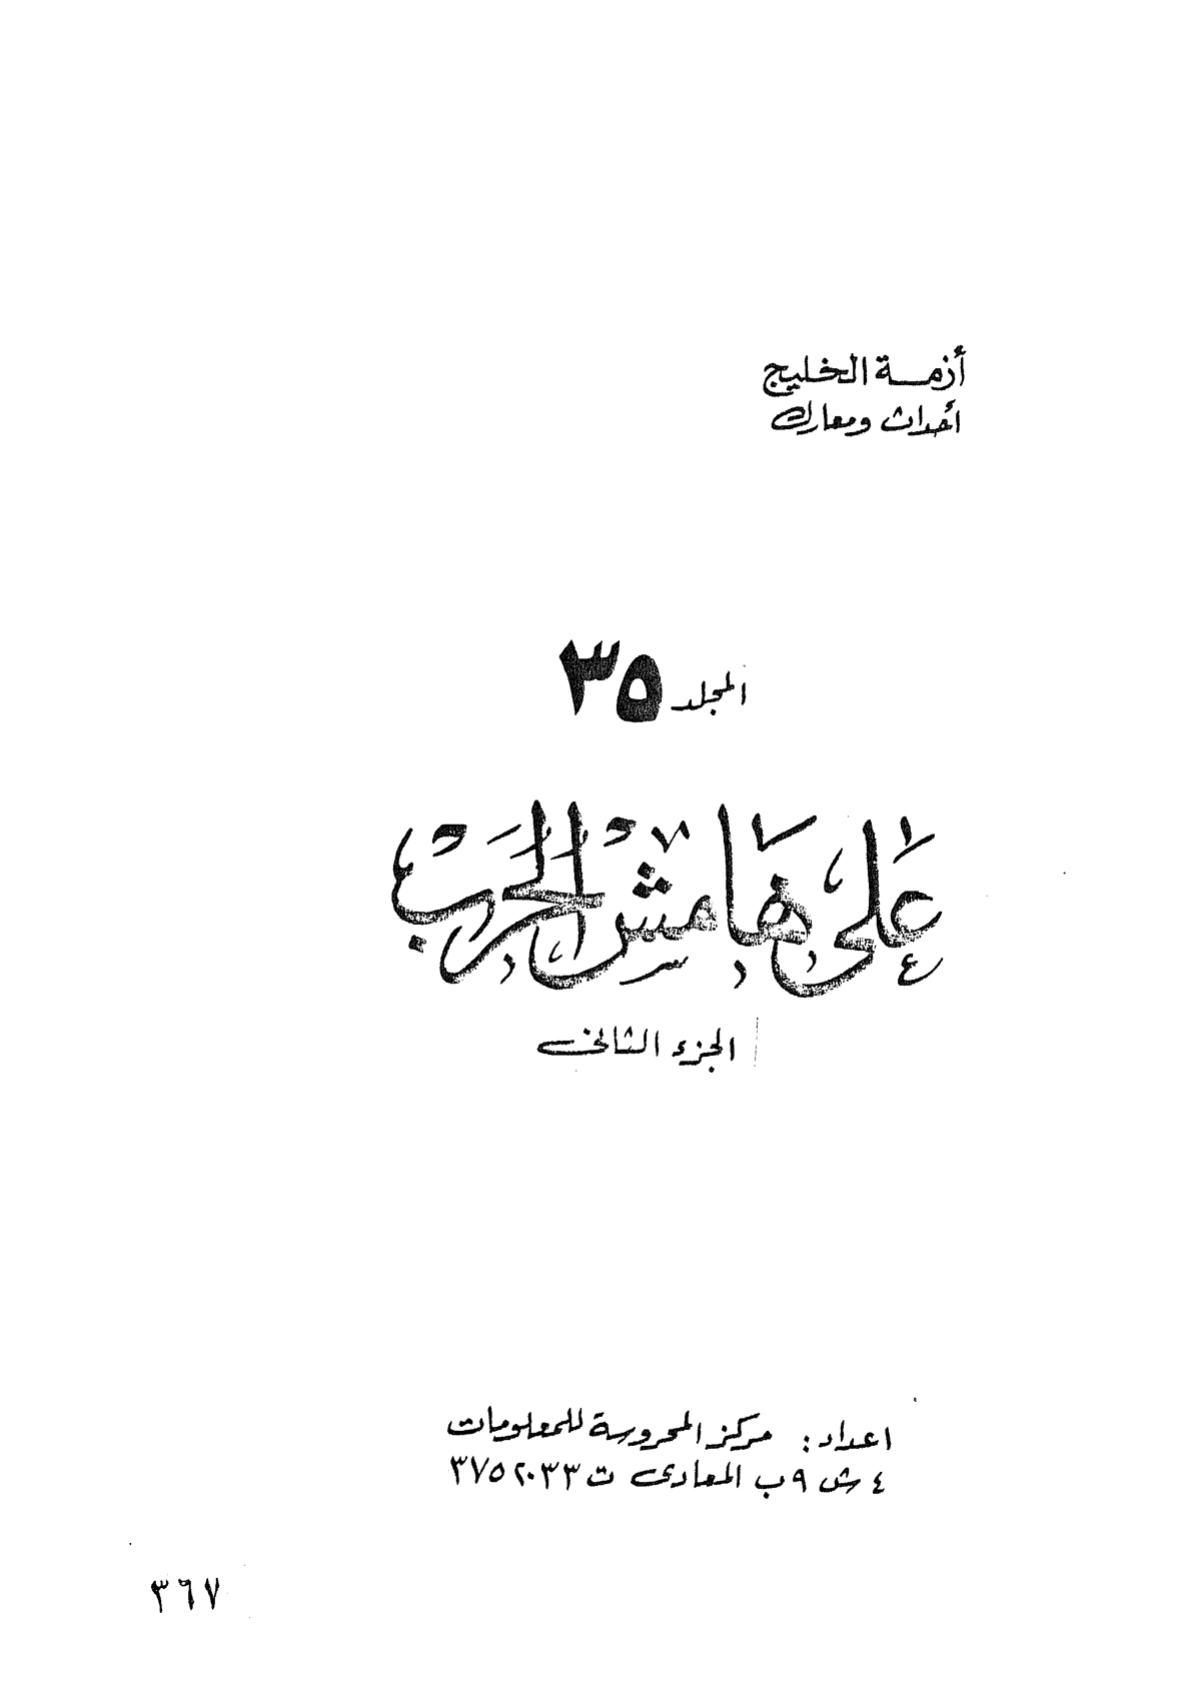 أزمة الخليج
أحداث ومعارك
المجلد ٣٥
على هامش الحرب
الجزء الثانى
اعداد: مركز المحروسة للمعلومات
٤ ش ٩ ب المعادى ت ٣٧٥٢٠٣٣
٣٦٧